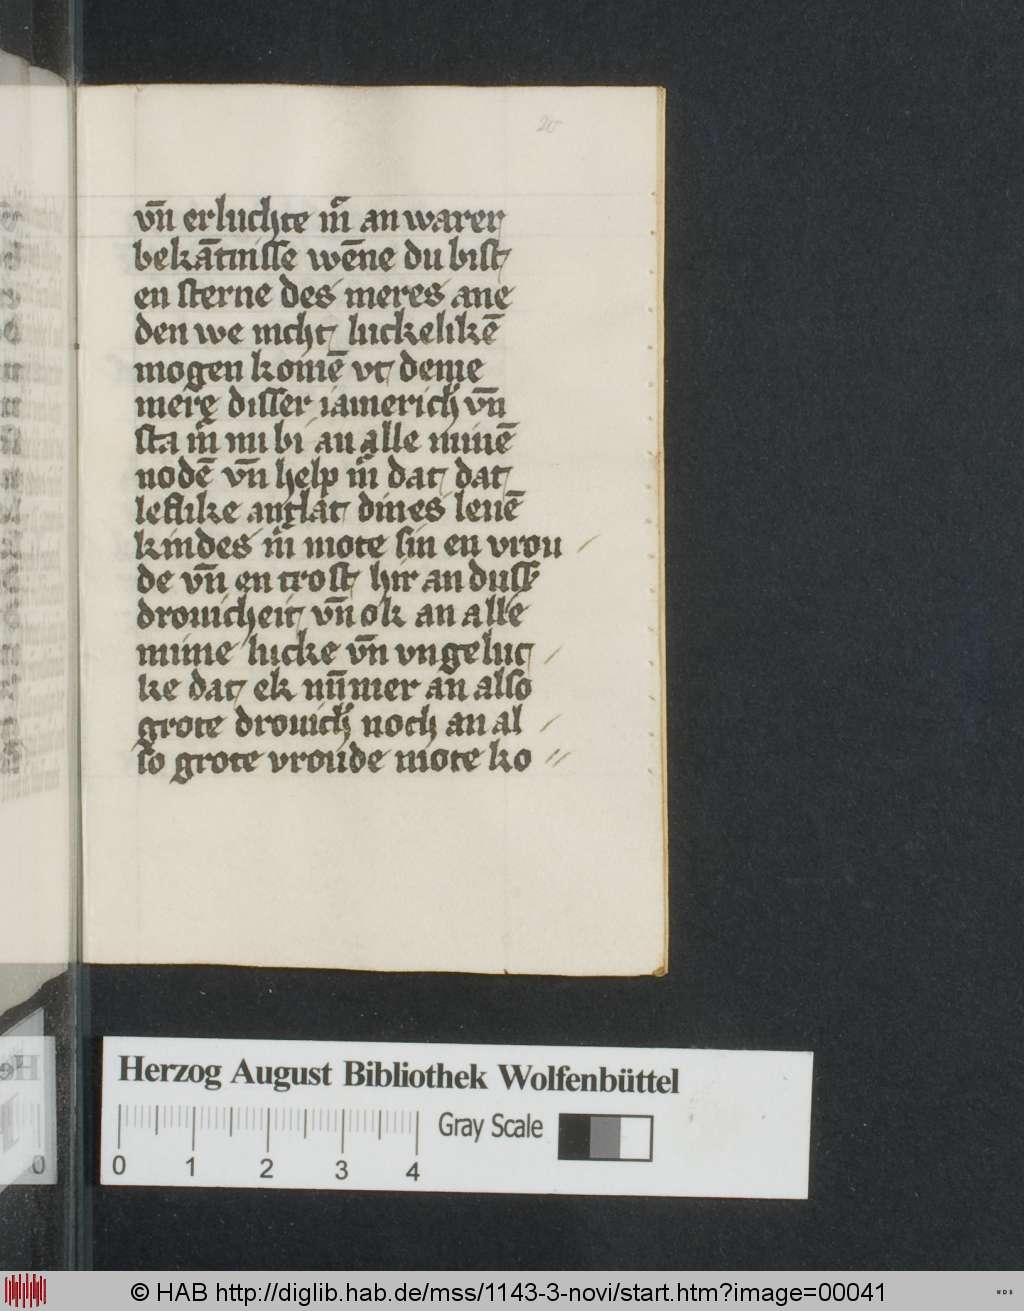 20
vn̄ erluchte m̄ an warer
bekātnisse wēne du bist
en sterne des meres ane
den we nicht luckelikē
mogen komē vt deme
mere disser iamerich vn̄
sta m̄ mi bi an alle minē
nodē vn̄ help m̄ dat dat
leflike antlat dines leuē
kindes m̄ mote sin en vrou
de vn̄ en trost hir an duss
drouicheit vn̄ ok an alle
mine lucke vn̄ vngeluc
ke dat ek nūmer an also
grote drouich noch an al
so grote vroude mote ko
Herzog August Bibliothek Wolfenbüttel
Gray Scale
0 1 2 3 4
© HAB http://diglib.hab.de/mss/1143-3-novi/start.htm?image=00041